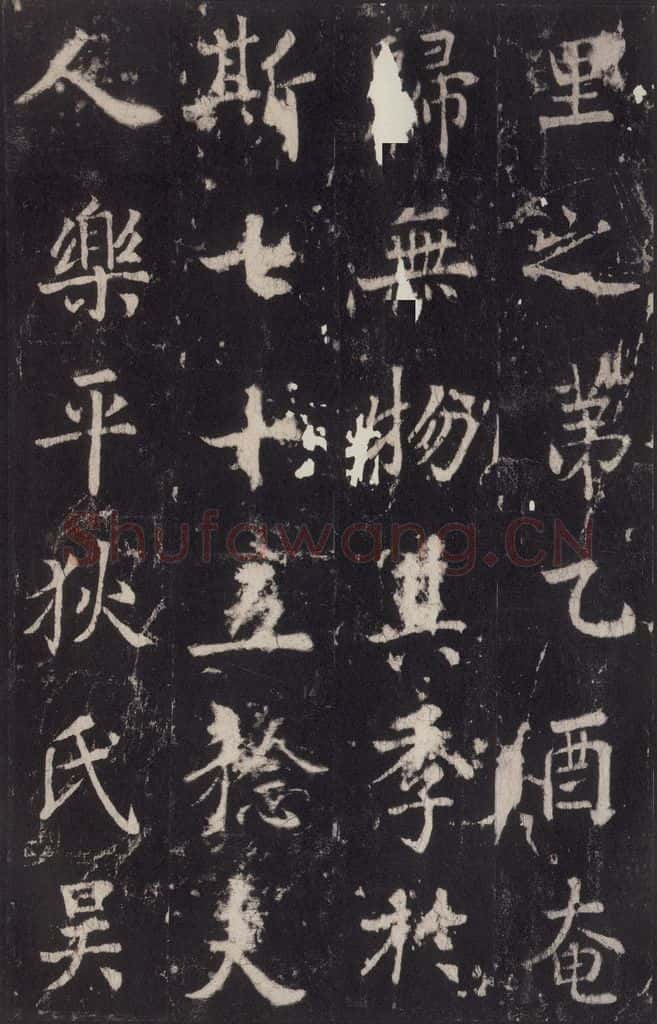 里之苐乙酉奄
歸無物其季於
斯七十五稔夫
人樂平狄氏昊
Shufawang.CN